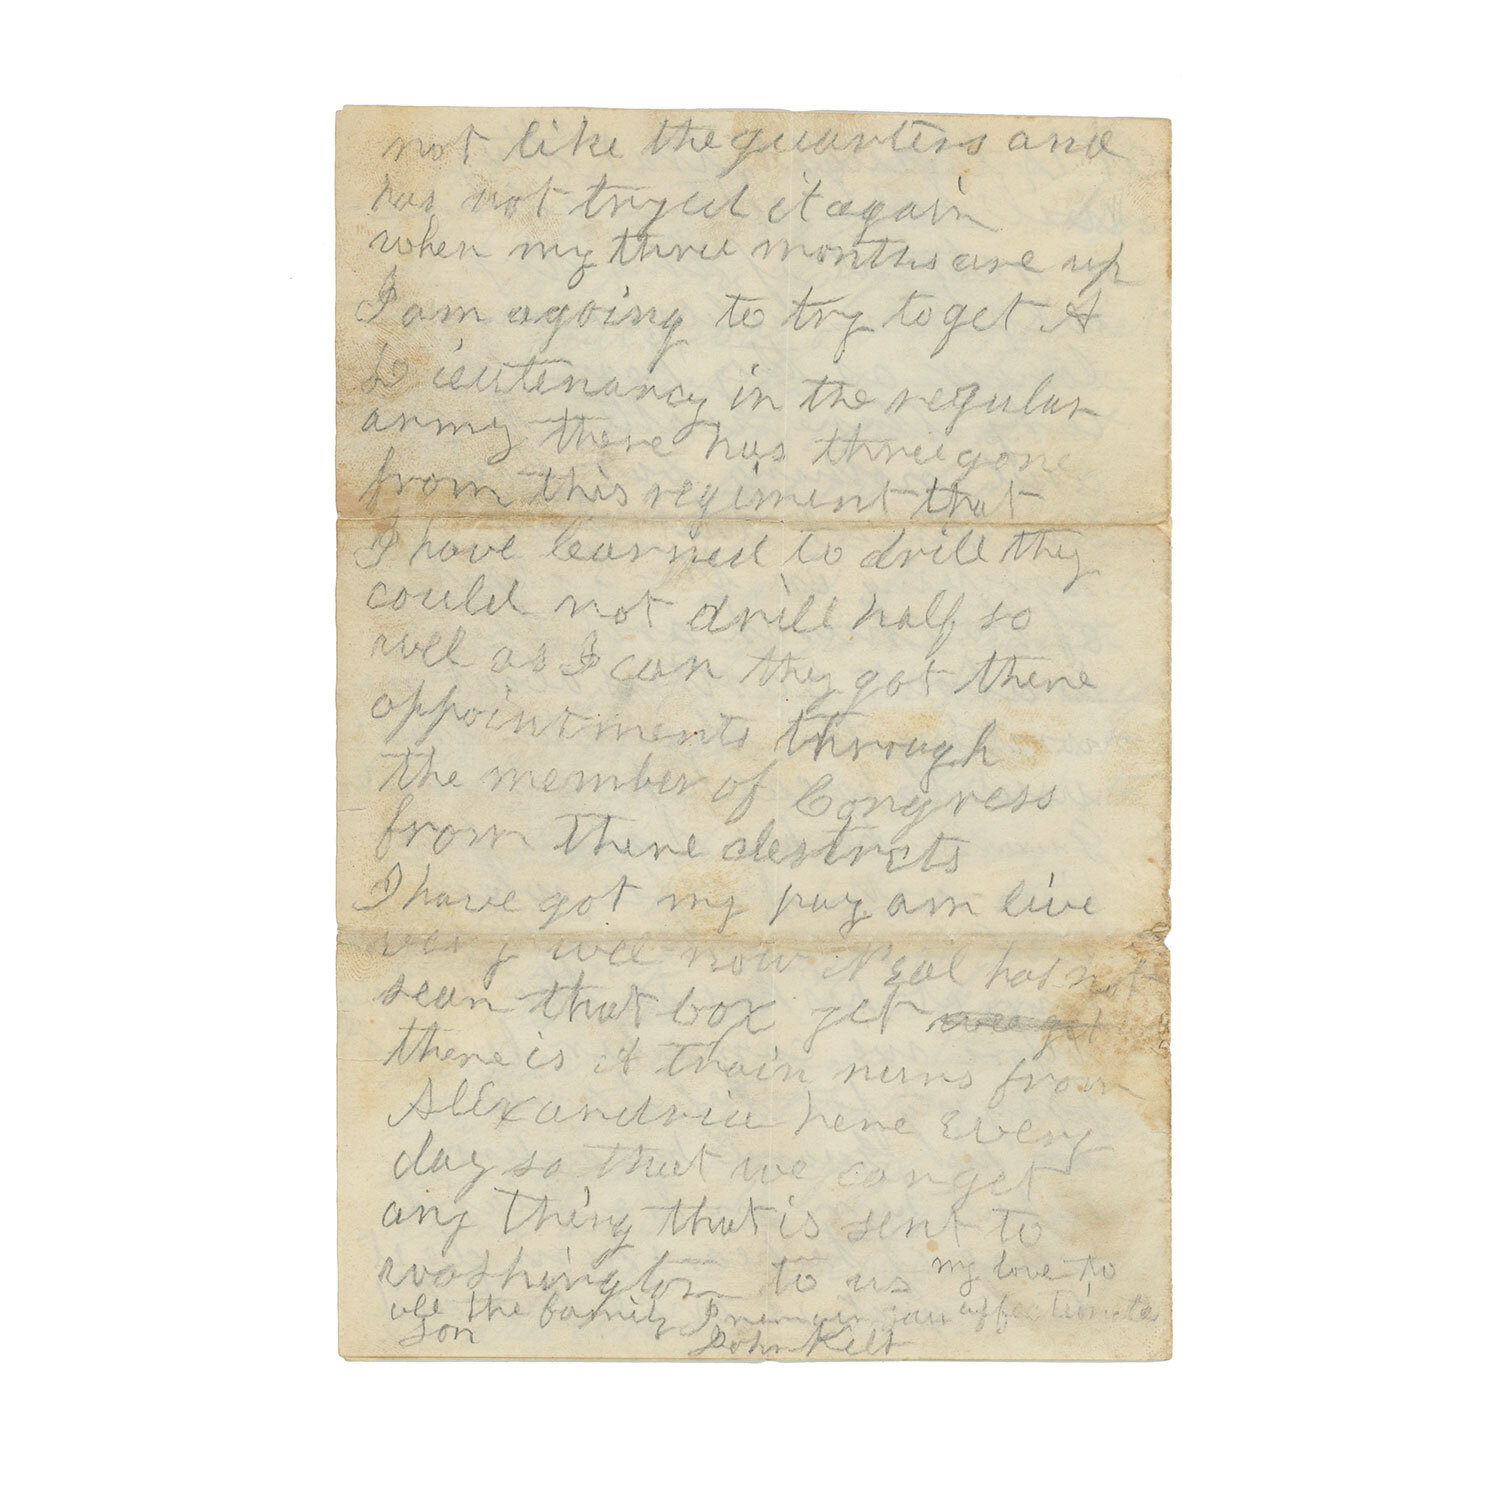 not like the quarters and
has not tryed it again
when my three months are up
I am agoing to try to get A
Lieutenancy in the regular
army there has three gone
from this regiment that
I have learned to drill they
could not drill half so
well as I can they got there
appointments through
the member of Congress
from there destrcts
I have got my pay am live
very well now Neal has not
sean that box yet
there is A train runs from
Alexandria here Every
day so that we can get
any thing that is sent to
washington to us my love to
all the family I remain your affectionate
son John Kelt